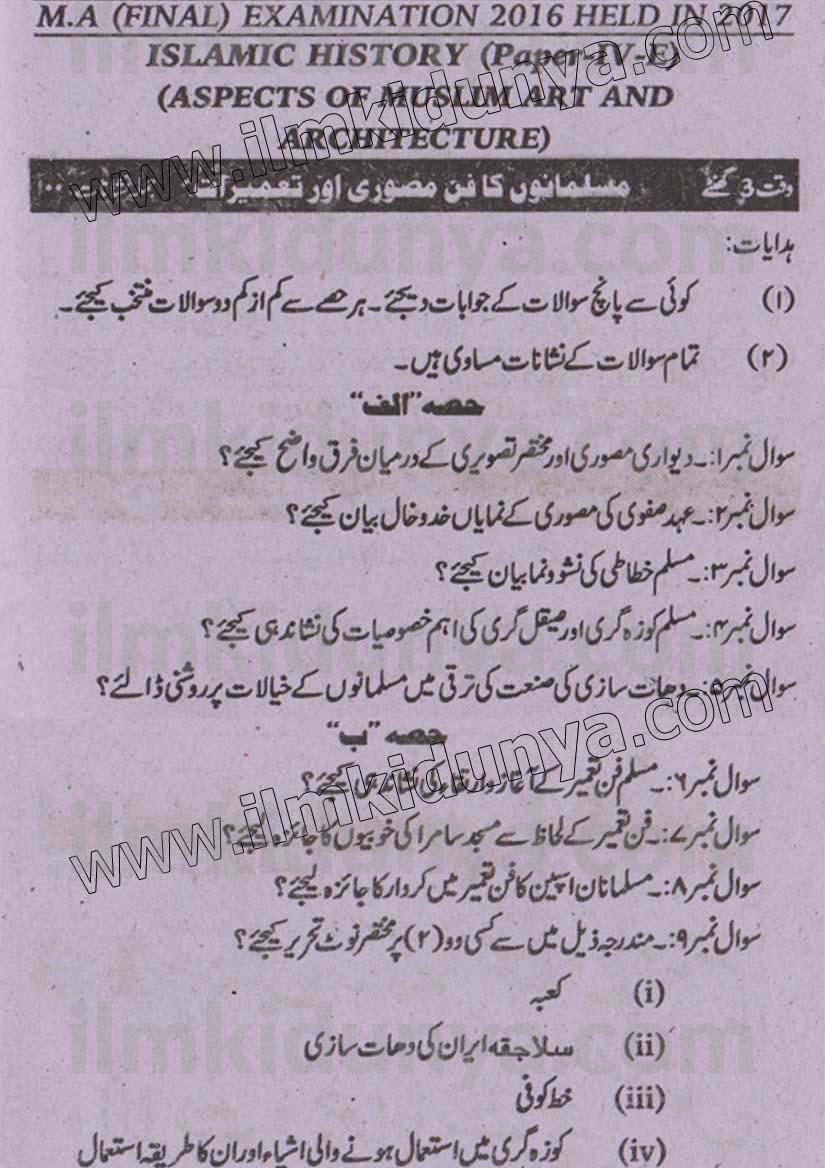 M.A (FINAL) EXAMINATION 2016 HELD IN 2017
ISLAMIC HISTORY (Paper-IV-E)
(ASPECTS OF MUSLIM ART AND
ARCHITECTURE)
وقت 3 گھنٹے مسلمانوں کا فن مصوری اور تعمیرات ۱۰۰
ہدایات:
(۱) کوئی سے پانچ سوالات کے جوابات دیجئے۔ ہر حصے سے کم از کم دو سوالات منتخب کیجئے۔
(۲) تمام سوالات کے نشانات مساوی ہیں۔
حصہ "الف"
سوال نمبر ۱:۔ دیواری مصوری اور مختصر تصویری کے درمیان فرق واضح کیجئے؟
سوال نمبر ۲:۔ عہد صفوی کی مصوری کے نمایاں خدوخال بیان کیجئے؟
سوال نمبر ۳:۔ مسلم خطاطی کی نشوونما بیان کیجئے؟
سوال نمبر ۴:۔ مسلم کوزہ گری اور صیقل گری کی اہم خصوصیات کی نشاندہی کیجئے؟
سوال نمبر ۵:۔ دھات سازی کی صنعت کی ترقی میں مسلمانوں کے خیالات پر روشنی ڈالئے؟
حصہ "ب"
سوال نمبر ۶:۔ مسلم فن تعمیر کے آغاز و ارتقاء کی نشاندہی کیجئے؟
سوال نمبر ۷:۔ فن تعمیر کے لحاظ سے مسجد سامرا کی خوبیوں کا جائزہ لیجئے؟
سوال نمبر ۸:۔ مسلمانان اسپین کا فن تعمیر میں کردار کا جائزہ لیجئے؟
سوال نمبر ۹:۔ مندرجہ ذیل میں سے کسی دو (۲) پر مختصر نوٹ تحریر کیجئے؟
(i) کعبہ
(ii) سلاجقہ ایران کی دھات سازی
(iii) خط کوفی
(iv) کوزہ گری میں استعمال ہونے والی اشیاء اور ان کا طریقہ استعمال
www.ilmkidunya.com
www.ilmkidunya.com
ilmkidunya.com
ilmkidunya.com
ilmkidunya.com
ilmkidunya.com
ilmkidunya.com
ilmkidunya.com